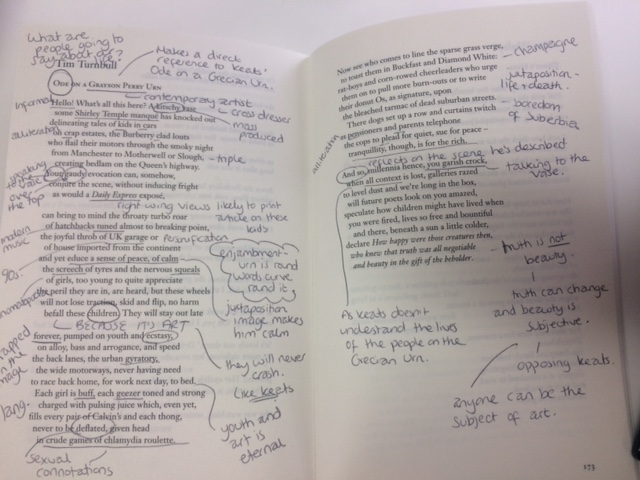 What are
people going to
say about us?
Makes a direct
reference to Keats'
Ode on a Grecian Urn.
Tim Turnbull
ODE ON A GRAYSON PERRY URN
contemporary artist
cross dresser
mass
produced
informal
Hello! What's all this here? A kitschy vase
some Shirley Temple manqué has knocked out
delineating tales of kids in cars
on crap estates, the Burberry clad louts
who flail their motors through the smoky night
from Manchester to Motherwell or Slough,
triple
creating bedlam on the Queen's highway.
Your gaudy evocation can, somehow,
conjure the scene, without inducing fright
as would a Daily Express exposé,
over
the top
right wing views likely to print
article on these
kids
can bring to mind the throaty turbo roar
of hatchbacks tuned almost to breaking point,
the joyful throb of UK garage or
personification
of house imported from the continent
and yet educe a sense of peace, of calm –
the screech of tyres and the nervous squeals
of girls, too young to quite appreciate
the peril they are in, are heard, but these wheels
will not lose traction, skid and flip, no harm
befall these children. They will stay out late
modern
music
90s.
onomatopoeia
enjambment-
urn is round
words curve
round it
juxtaposition
image makes
him calm
BECAUSE IT'S ART
forever, pumped on youth and ecstasy,
on alloy, bass and arrogance, and speed
the back lanes, the urban gyratory,
the wide motorways, never having need
to race back home, for work next day, to bed.
Each girl is buff, each geezer toned and strong,
charged with pulsing juice which, even yet,
fills every pair of Calvin's and each thong,
never to be deflated, given head
in crude games of chlamydia roulette.
trapped
in the
image
they will never
crash.
Like Keats
youth and
art is
eternal
sexual
connotations
Now see who comes to line the sparse grass verge,
to toast them in Buckfast and Diamond White:
rat-boys and corn-rowed cheerleaders who urge
them on to pull more burn-outs or to write
their donut Os, as signature, upon
the bleached tarmac of dead suburban streets.
There dogs set up a row and curtains twitch
as pensioners and parents telephone
the cops to plead for quiet, sue for peace –
tranquility, though, is for the rich.
champagne
juxtaposition -
life + death.
boredom
of suberbia
alliteration
reflects on the scene he's described
talking to the
vase.
And so, millennia hence, you garish crock,
when all context is lost, galleries razed
to level dust and we're long in the box,
will future poets look on you amazed,
speculate how children might have lived when
you were fired, lives so free and bountiful
and there, beneath a sun a little colder,
declare How happy were those creatures then,
who knew that truth was all negotiable
and beauty in the gift of the beholder.
truth is not
beauty.
truth can change
and beauty is
subjective.
opposing Keats.
anyone can be the
subject of art.
As Keats doesn't
understand the lives
of the people on the
Grecian Urn.
173